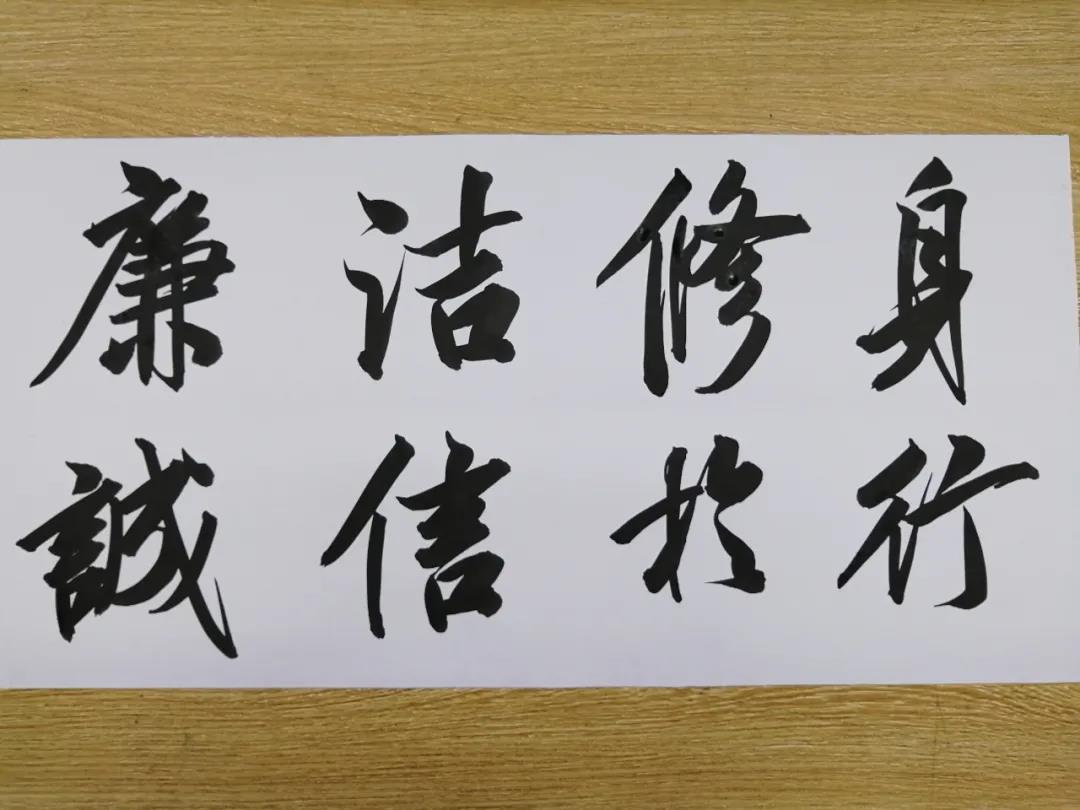 廉洁修身
誠信於行